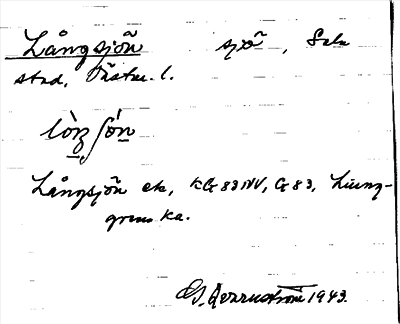 Långsjön sjö, Sala
stad, Västm. l.
lòŋʃón
Långsjön ek, KG 83 NV, G 83, Ljung-
grens ka.
G. Qvarnström 1943.